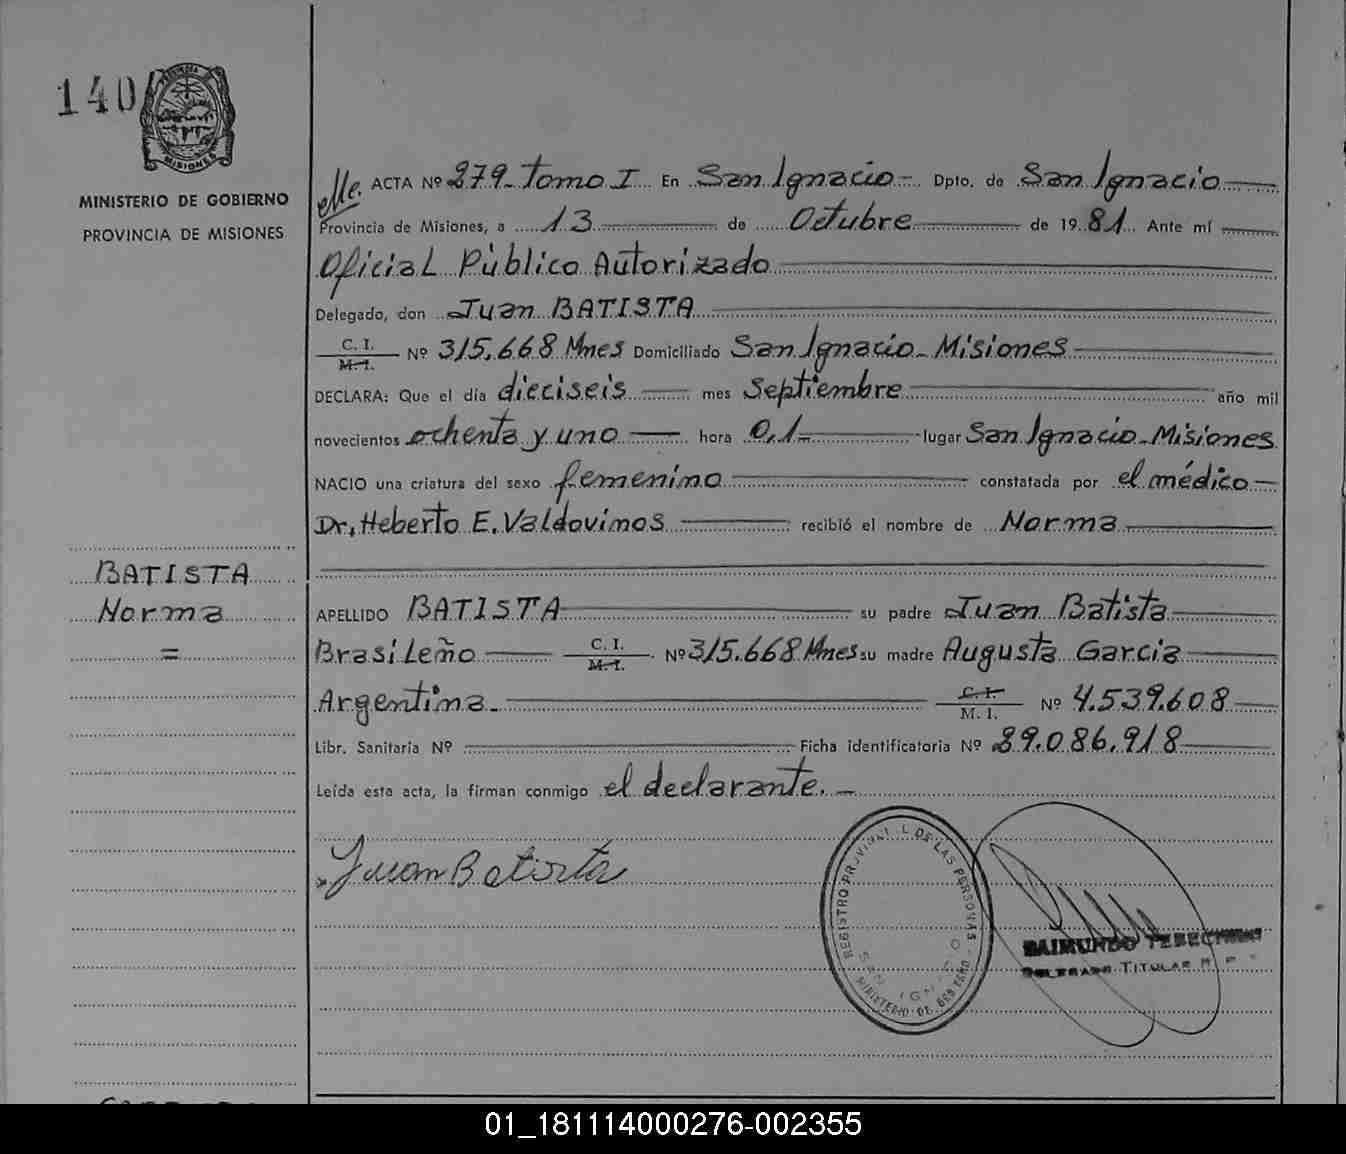 140
PROVINCIA DE
MISIONES
MINISTERIO DE GOBIERNO
PROVINCIA DE MISIONES
BATISTA
Norma
=
ACTA Nº 279 - Tomo I En San Ignacio - Dpto. de San Ignacio
Provincia de Misiones, a 13 de Octubre de 1981 Ante mí
Oficial Público Autorizado
Delegado, don Juan BATISTA
C. I.
M. I.
Nº 315.668 Mnes Domiciliado San Ignacio - Misiones
DECLARA: Que el día dieciseis mes Septiembre año mil
novecientos ochenta y uno hora 0,1 - lugar San Ignacio - Misiones
NACIO una criatura del sexo femenino constatada por el médico -
Dr. Heberto E. Valdovinos recibió el nombre de Norma
APELLIDO BATISTA su padre Juan Batista
Brasileño C. I. M. I. Nº 315.668 Mnes su madre Augusta Garcia
Argentina - C. I. M. I. Nº 4.539.608
Libr. Sanitaria Nº Ficha identificatoria Nº 29.086.918
Leída esta acta, la firman conmigo el declarante. -
Juan Batista
REGISTRO PROVINCIAL DE LAS PERSONAS
SAN IGNACIO
MINISTERIO DE GOBIERNO
RAIMUNDO
DELEGADO TITULAR R. P.
01_181114000276-002355